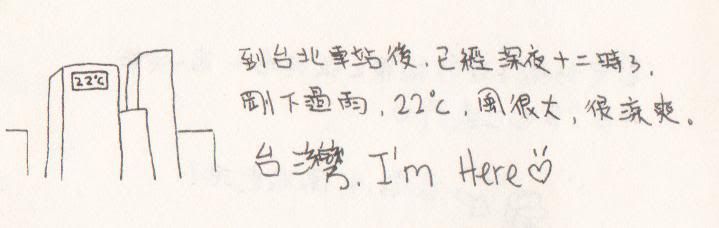 22°C
到台北車站後，已經深夜十二時了，
剛下過雨，22°C，風很大，很涼爽。
台灣，I'm Here